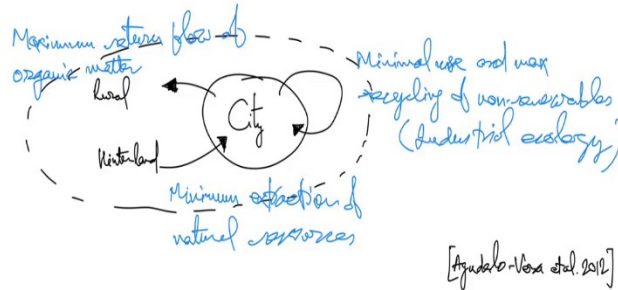 Maximum return flow of
organic matter
Rural
City
Hinterland
Minimal use and max
recycling of non-renewables
(Industrial ecology)
Minimum extraction of
natural resources
[Agudelo-Vera et al. 2012]